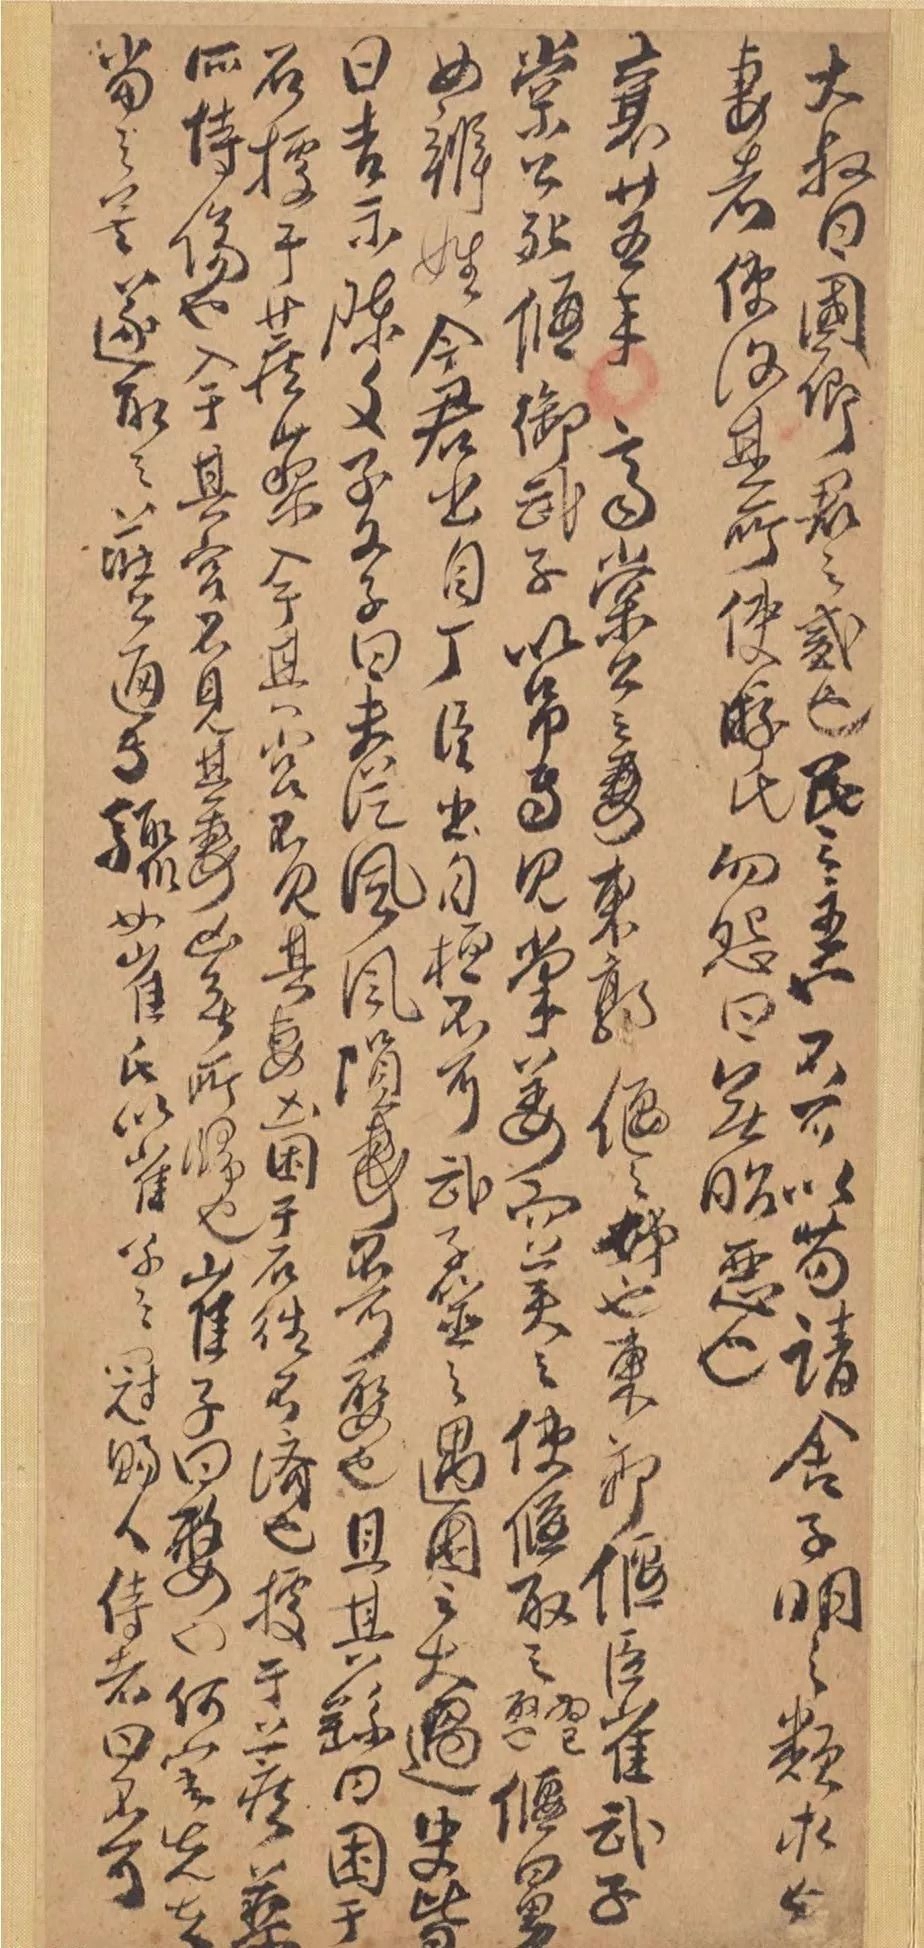 大叔曰國卿君之貳也民之主也不可以苟請舍子明之類求亡
妻者使復其所使游氏勿怨曰無昭惡也
襄廿五年 齊棠公之妻東郭偃之姊也東郭偃臣崔武子
棠公死偃御武子以吊焉見棠姜而美之使偃取之偃曰男
女辨姓今君出自丁臣出自桓不可武子筮之遇困之大過史皆
曰吉示陳文子文子曰夫從風風隕妻不可娶也且其繇曰困于
石據于蒺藜入于其宮不見其妻凶困于石往不濟也據于蒺藜
所恃傷也入于其宮不見其妻凶無所歸也崔子曰嫠也何害先夫
當之矣遂取之莊公通焉驟如崔氏以崔子之冠賜人侍者曰不可